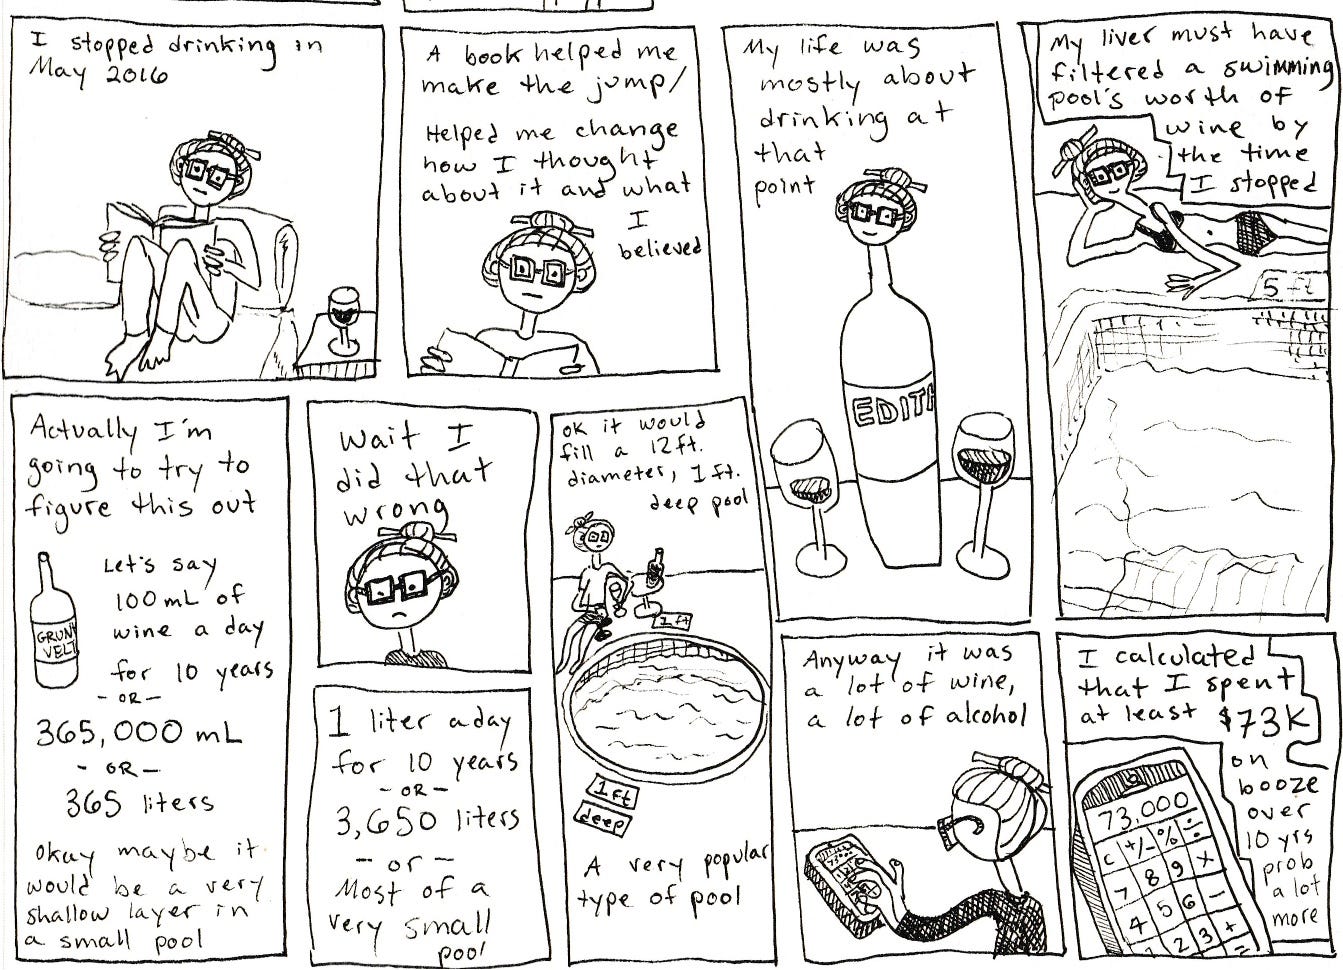 I stopped drinking in
May 2016
A book helped me
make the jump/
Helped me change
how I thought
about it and what
I
believed
My life was
mostly about
drinking at
that
point
EDITH
My liver must have
filtered a swimming
pool's worth of
wine by
the time
I stopped
5 ft
Actually I'm
going to try to
figure this out
Let's say
100 mL of
wine a day
for 10 years
- OR -
365,000 mL
- OR -
365 liters
Okay maybe it
would be a very
shallow layer in
a small pool
GRUN
VELT
Wait I
did that
wrong
1 liter a day
for 10 years
- OR -
3,650 liters
- or -
Most of a
very small
pool
OK it would
fill a 12 ft.
diameter, 1 ft.
deep pool
1 ft
1 ft
deep
A very popular
type of pool
Anyway it was
a lot of wine,
a lot of alcohol
I calculated
that I spent
at least $73K
on
booze
over
10 yrs
prob
a lot
more
73,000
C +/- % ÷
7 8 9 X
4 5 6 -
1 2 3 +
=